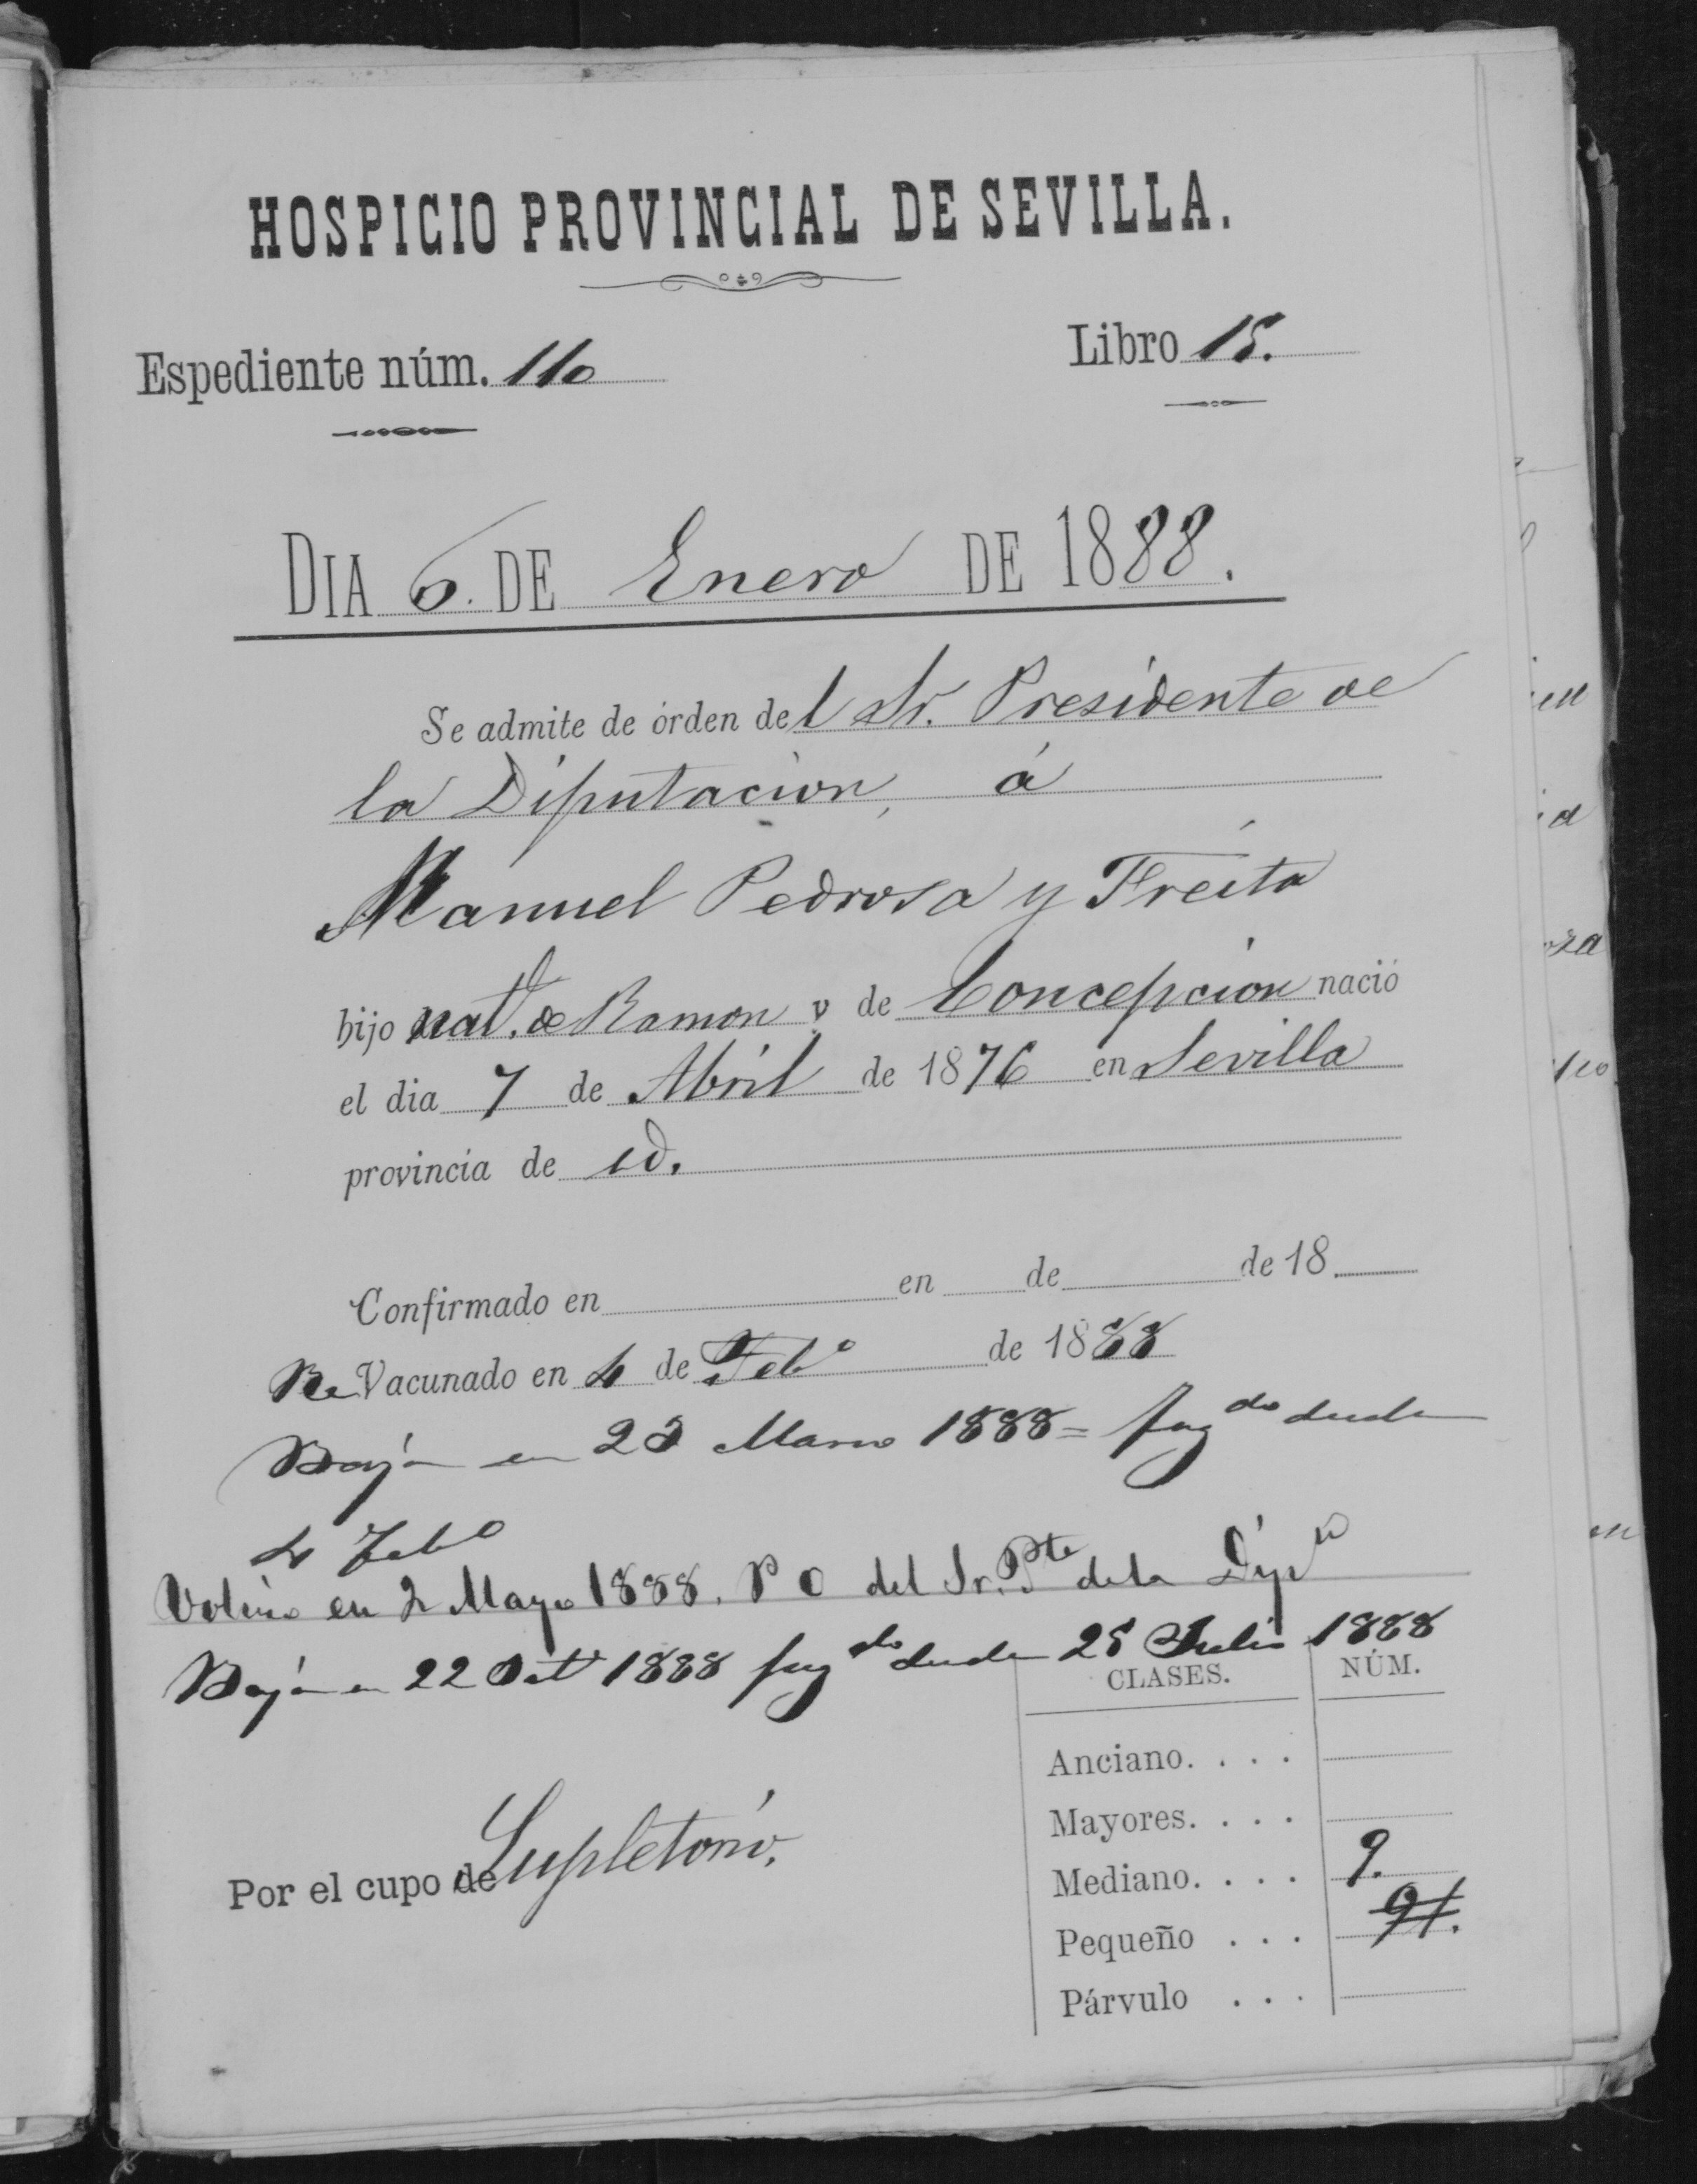 HOSPICIO PROVINCIAL DE SEVILLA.
Espediente núm. 110
Libro 15.
DIA 6. DE Enero DE 1888.
Se admite de órden del Sr. Presidente de
la Diputacion, á
Manuel Pedrosa y Freita
hijo natl. de Ramon y de Concepcion nació
el dia 7 de Abril de 1876 en Sevilla
provincia de id.
Confirmado en en de de 18
Re Vacunado en 4 de Febo de 1888
Baja en 23 Marzo 1888 = fugdo desde
4 Febo
Volvió en 2 Mayo 1888. P O del Sr. Pte de la Dipn
Baja en 22 Oct 1888 fugdo desde 25 Julio 1888
CLASES. NÚM.
Anciano. . . .
Mayores. . . .
Mediano. . . . 9.
Pequeño . . . 91.
Párvulo . . .
Por el cupo de Supletorio.